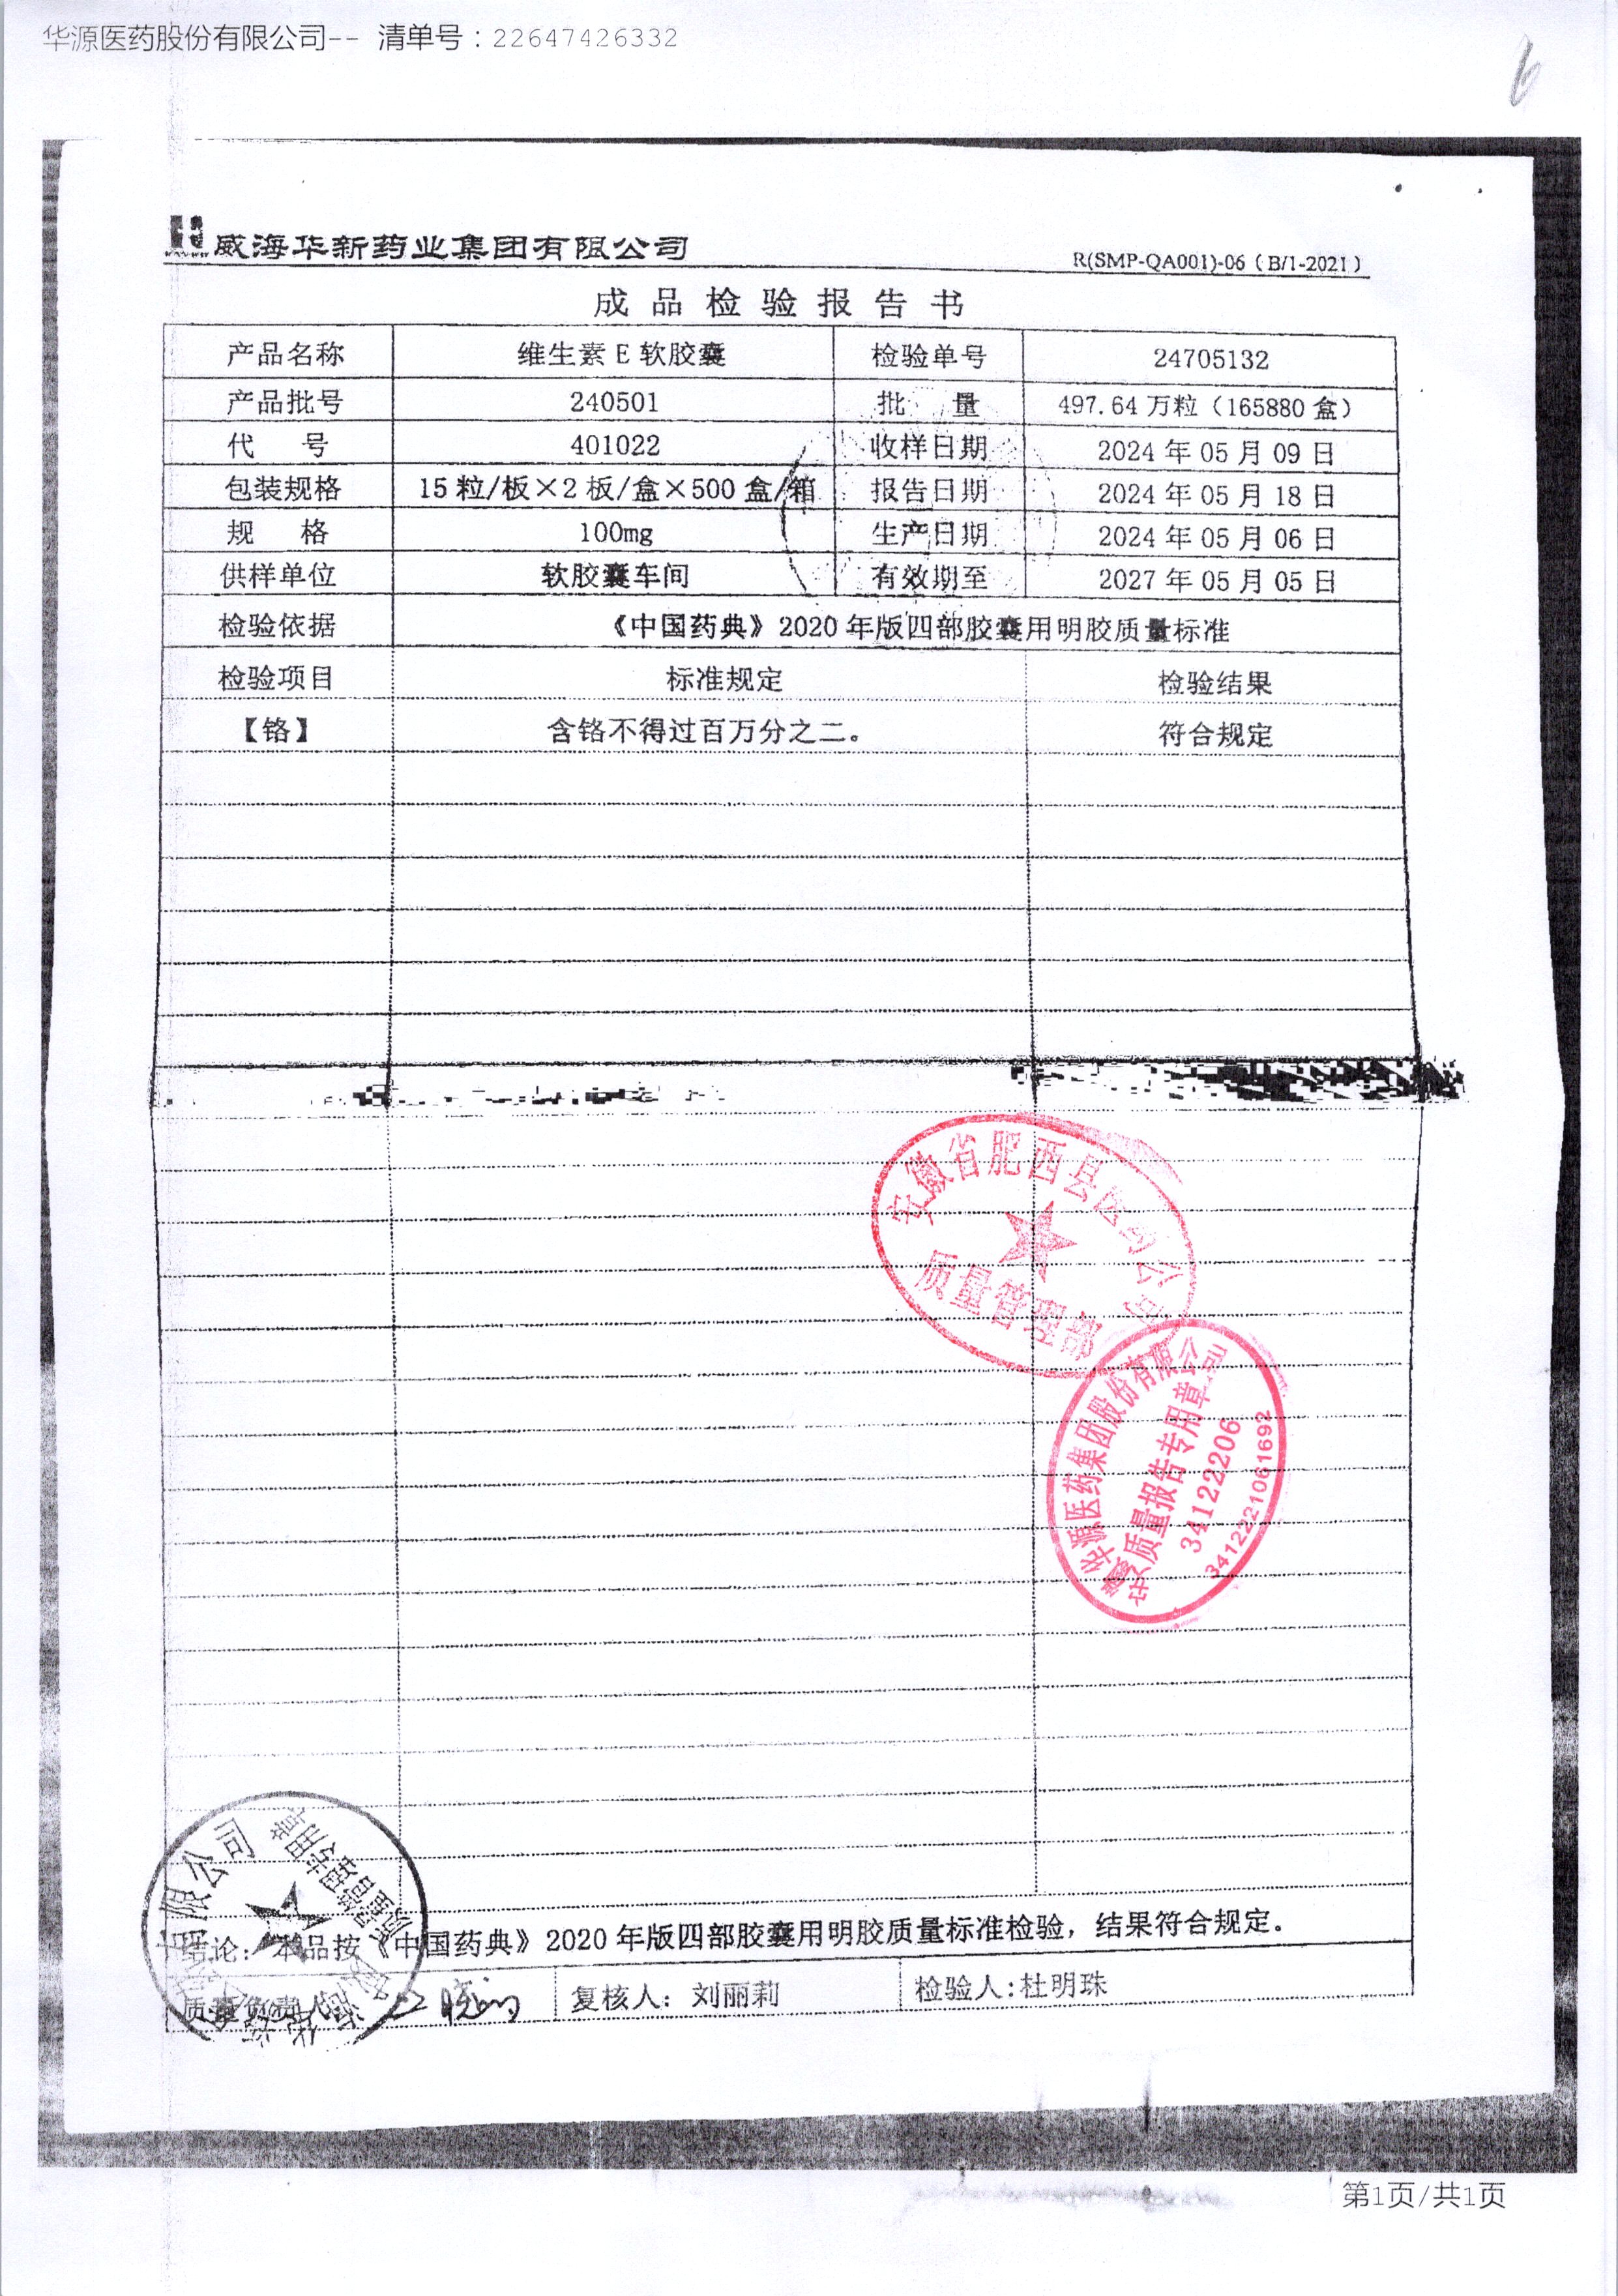 华源医药股份有限公司-- 清单号：22647426332
6
威海华新药业集团有限公司 R(SMP-QA001)-06（B/1-2021）
成品检验报告书
产品名称 维生素 E 软胶囊 检验单号 24705132
产品批号 240501 批 量 497.64 万粒（165880 盒）
代 号 401022 收样日期 2024 年 05 月 09 日
包装规格 15 粒/板×2 板/盒×500 盒/箱 报告日期 2024 年 05 月 18 日
规 格 100mg 生产日期 2024 年 05 月 06 日
供样单位 软胶囊车间 有效期至 2027 年 05 月 05 日
检验依据 《中国药典》2020 年版四部胶囊用明胶质量标准
检验项目 标准规定 检验结果
【铬】 含铬不得过百万分之二。 符合规定
安徽省肥西县医药公司
质量管理部
华源医药集团股份有限公司
质量报告专用章
34122206
3412221061692
限公司
质量管理专用章
结论：本品按《中国药典》2020 年版四部胶囊用明胶质量标准检验，结果符合规定。
质量负责人： 复核人：刘丽莉 检验人:杜明珠
第1页/共1页